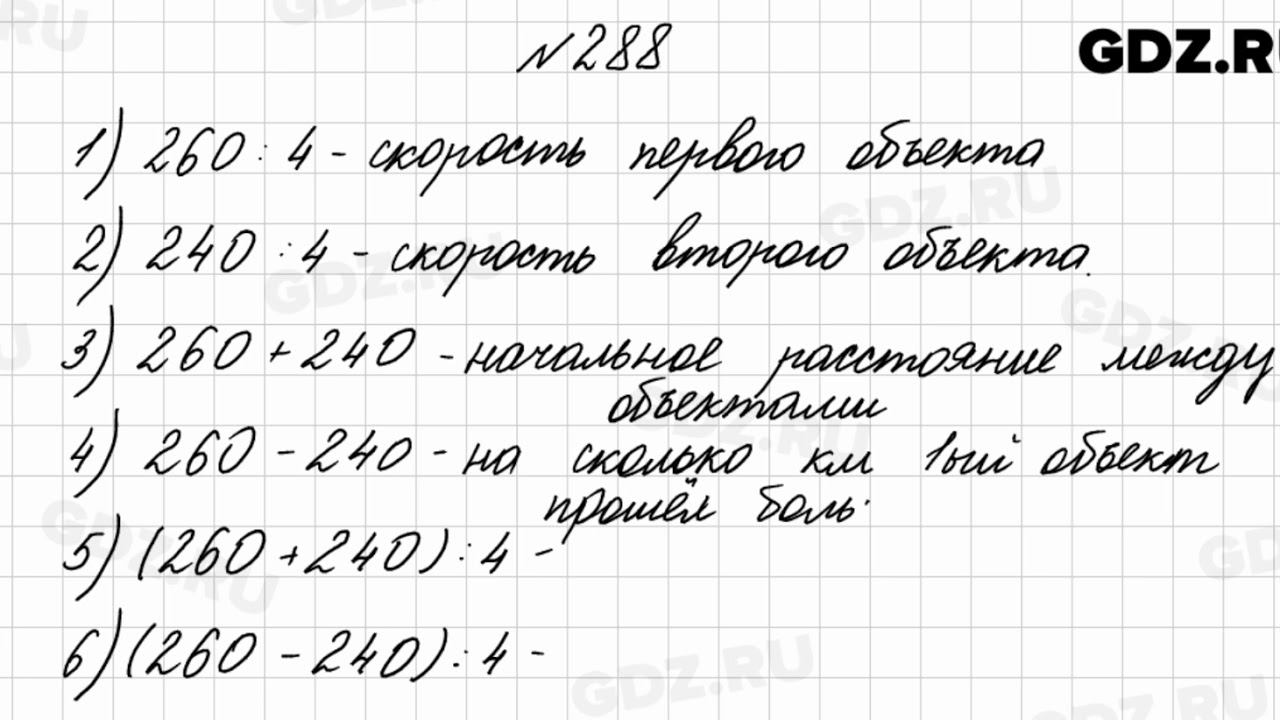 №288
GDZ.RU
1) 260 : 4 - скорость первого объекта
2) 240 : 4 - скорость второго объекта.
3) 260 + 240 - начальное расстояние между
объектами
4) 260 - 240 - на сколько км 1ый объект
прошёл боль.
5) (260 + 240) : 4 -
6) (260 - 240) : 4 -